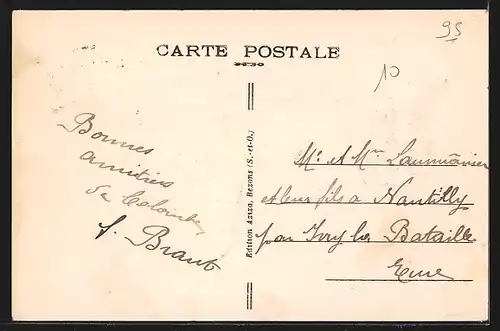 95
CARTE POSTALE
10
Bonnes
amitiés
de Colombes
f. Braut
Edition Aziza, Bezons (S.-et-O.)
Mr et Mme
et leur fils à Nantilly
par Ivry la Bataille
Eure